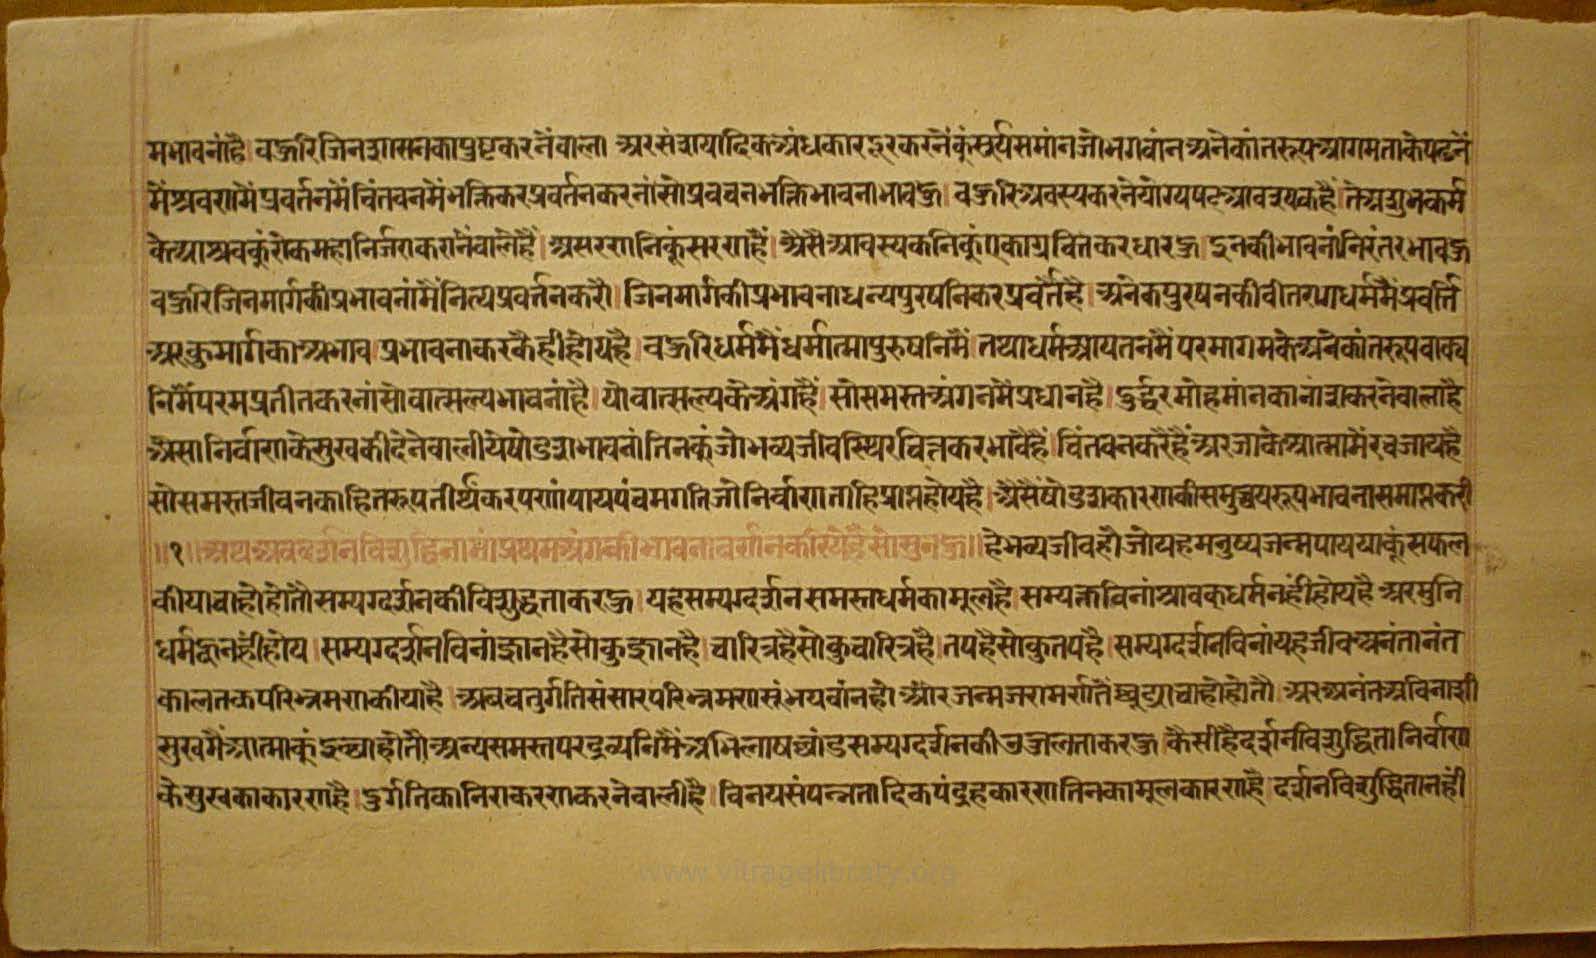 मभावनांहै। वहुरिजिनशासनकापुष्टकरनेंवाला अरसंशयादिकअंधकारदूरकरनेंकूंसूर्यसमांनजोभगवांनअनेकांतरूपआगमताकेपढनें
मेंश्रवणमेंप्रवर्तनमेंचिंतवनमेंभक्तिकरप्रवर्तनकरनांसोप्रवचनभक्तिभावनाभावहु। वहुरिअवस्यकरनेयोग्यषटआवश्यकहैं। तेअशुभकर्म
केआश्रवकुंरोकमहानिर्जराकरानेंवालेहैं। असरणनिकूंसरणहैं। अैसेआवस्यकनिकूंएकाग्रचितकरधारहु। इनकीभावनांनिरंतरभावहु
वहुरिजिनमार्गकीप्रभावनांमेंनित्यप्रवर्तनकरो। जिनमार्गकीप्रभावनाधन्यपुरषनिकरप्रवर्तेहै। अनेकपुरषनकीवीतरागधर्ममैंप्रवर्त्ति
अरकुमार्गकाअभाव। प्रभावनाकरकैहीहोयहै। वहुरिधर्ममैंधर्मात्मापुरुषनिमैं। तथाधर्मआयतनमैं। परमागमकेअनेकांतरूपवाक्य
निमेंपरमप्रतीतकरनांसोवात्सल्यभावनांहै। योवात्सल्यकेअंगहैं। सोसमस्तअंगनमैंप्रधानहै। दुर्द्धरमोहमांनकानांशकरनेवालाहै
अैसानिर्वाणकेसुखकीदेनेवालीयेषोडशभावनां। तिनकुंजोभव्यजीवस्थिरचित्तकरभावैहैं। चिंतवनकरैहैंअरजाकेआत्मामेंरचजायहै
सोसमस्तजीवनकाहितरूपतीर्थंकरपणांपायपंचमगतिजोनिर्वाणताहिप्राप्तहोयहै। अैसेंषोडशकारणकीसमुच्चयरूपभावनासमाप्तकरी
॥१॥अथअवदर्शनविशुद्धिनामांप्रथमअंगकीभावनावर्णनकरियेहैसोसुनहु॥ हेभव्यजीवहौजोयहमनुष्यजन्मपाययाकूंसफल
कीयाचाहोहोतौसम्यग्दर्शनकीविशुद्धताकरहु। यहसम्यग्दर्शनसमस्तधर्मकामूलहै। सम्यक्तविनांश्रावकधर्मनहींहोयहै। अरमुनि
धर्महूनहींहोय। सम्यग्दर्शनविनांज्ञानहैसोकुज्ञानहै। चारित्रहैसोकुचारित्रहै। तपहैसोकुतपहै। सम्यग्दर्शनविनांयहजीवअनंतानंत
कालतकपरिभ्रमणकीयाहै। अबचतुर्गतिसंसारपरिभ्रमणसूंभयवांनहो। औरजन्मजरामर्णतेंछूट्याचाहोहोतौ। अरअनंतअविनाशी
सुखमेंआत्माकुंइच्छाहोतौअन्यसमस्तपरद्रव्यनिमेंअभिलाषछांडसम्यग्दर्शनकीउज्जलताकरहु। कैसीहैदर्शनविशुद्धिता। निर्वाण
केसुखकाकारणहै। दुर्गतिकानिराकरणकरनेवालीहै। विनयसंपन्नतादिकपंद्रहकारणतिनकामूलकारणहै। दर्शनविशुद्धितानहीं
www.vitragelibrary.org